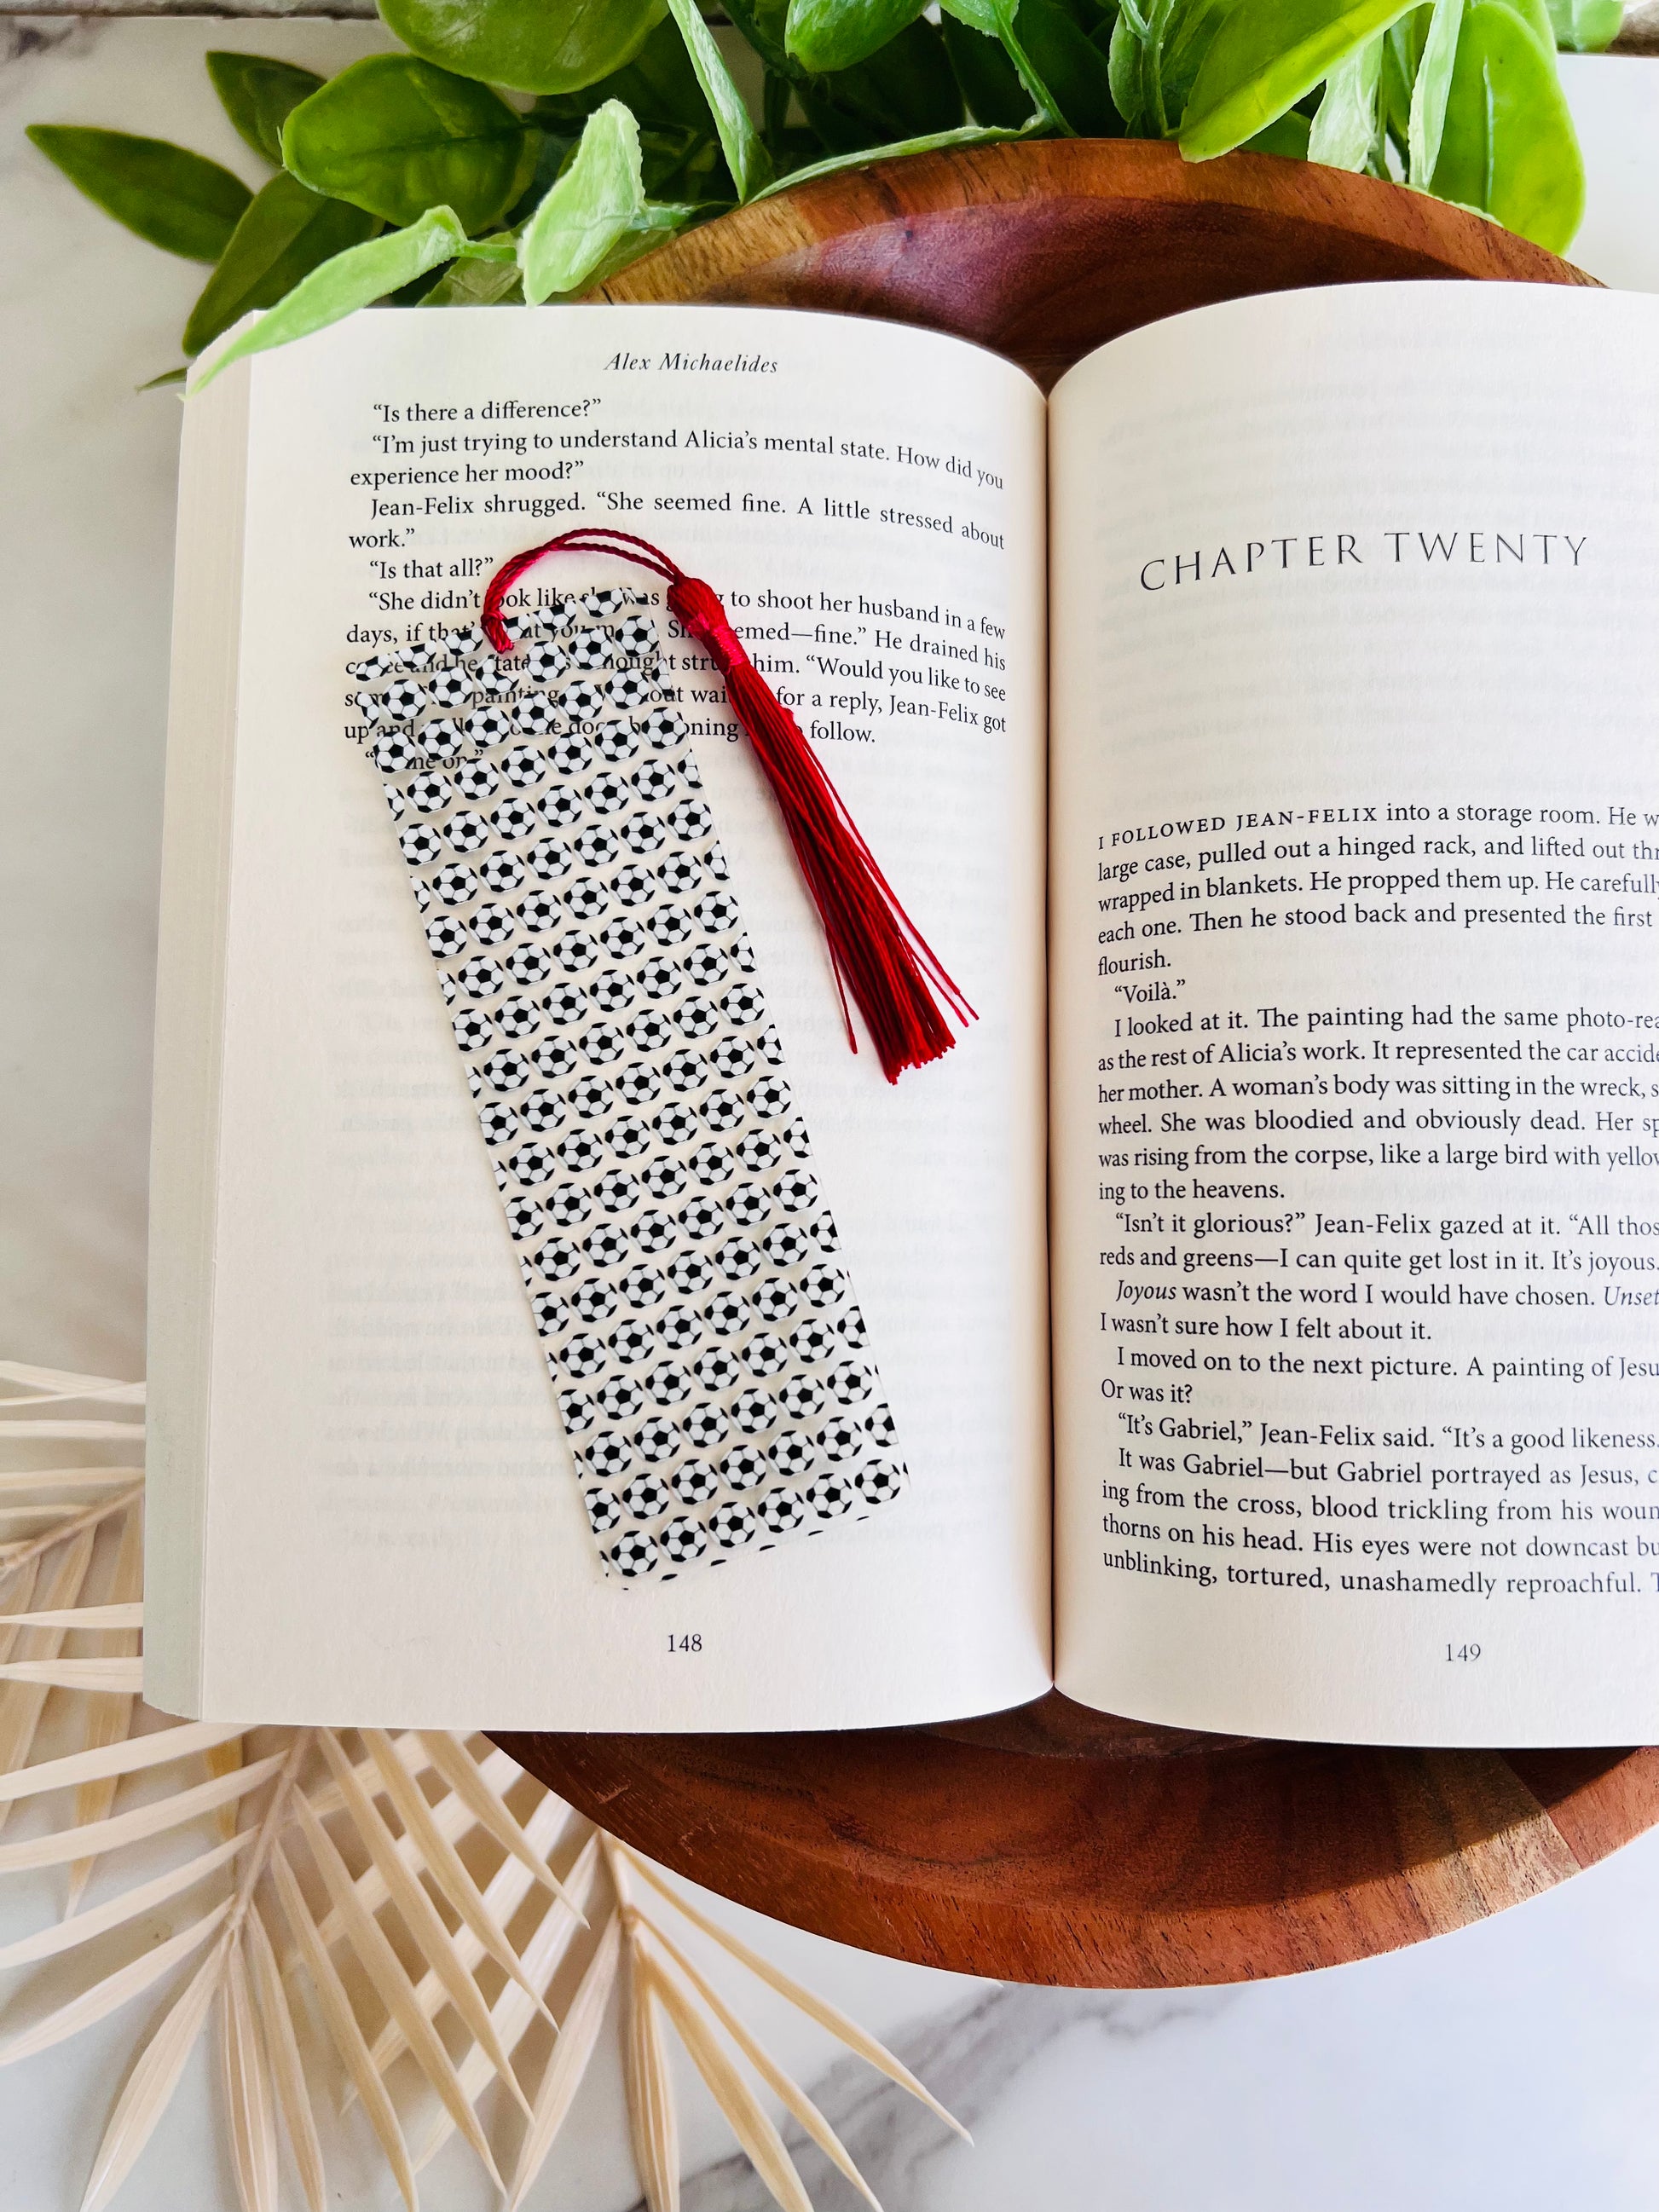 Alex Michaelides
“Is there a difference?”
“I’m just trying to understand Alicia’s mental state. How did you
experience her mood?”
Jean-Felix shrugged. “She seemed fine. A little stressed about
work.”
“Is that all?”
“She didn’t look like she was going to shoot her husband in a few
days, if that’s what you mean. She seemed—fine.” He drained his
coffee and hesitated as a thought struck him. “Would you like to see
some of painting out for a reply, Jean-Felix got
up and follow.
“Come on.”
148
CHAPTER TWENTY
I FOLLOWED JEAN-FELIX into a storage room. He
large case, pulled out a hinged rack, and lifted out
wrapped in blankets. He propped them up. He carefully
each one. Then he stood back and presented the first
flourish.
“Voilà.”
I looked at it. The painting had the same
as the rest of Alicia’s work. It represented the car
her mother. A woman’s body was sitting in the wreck,
wheel. She was bloodied and obviously dead. Her
was rising from the corpse, like a large bird with
ing to the heavens.
“Isn’t it glorious?” Jean-Felix gazed at it. “All
reds and greens—I can quite get lost in it. It’s joyous.
Joyous wasn’t the word I would have chosen.
I wasn’t sure how I felt about it.
I moved on to the next picture. A painting of
Or was it?
“It’s Gabriel,” Jean-Felix said. “It’s a good likeness.
It was Gabriel—but Gabriel portrayed as Jesus,
ing from the cross, blood trickling from his
thorns on his head. His eyes were not downcast
unblinking, tortured, unashamedly reproachful.
149